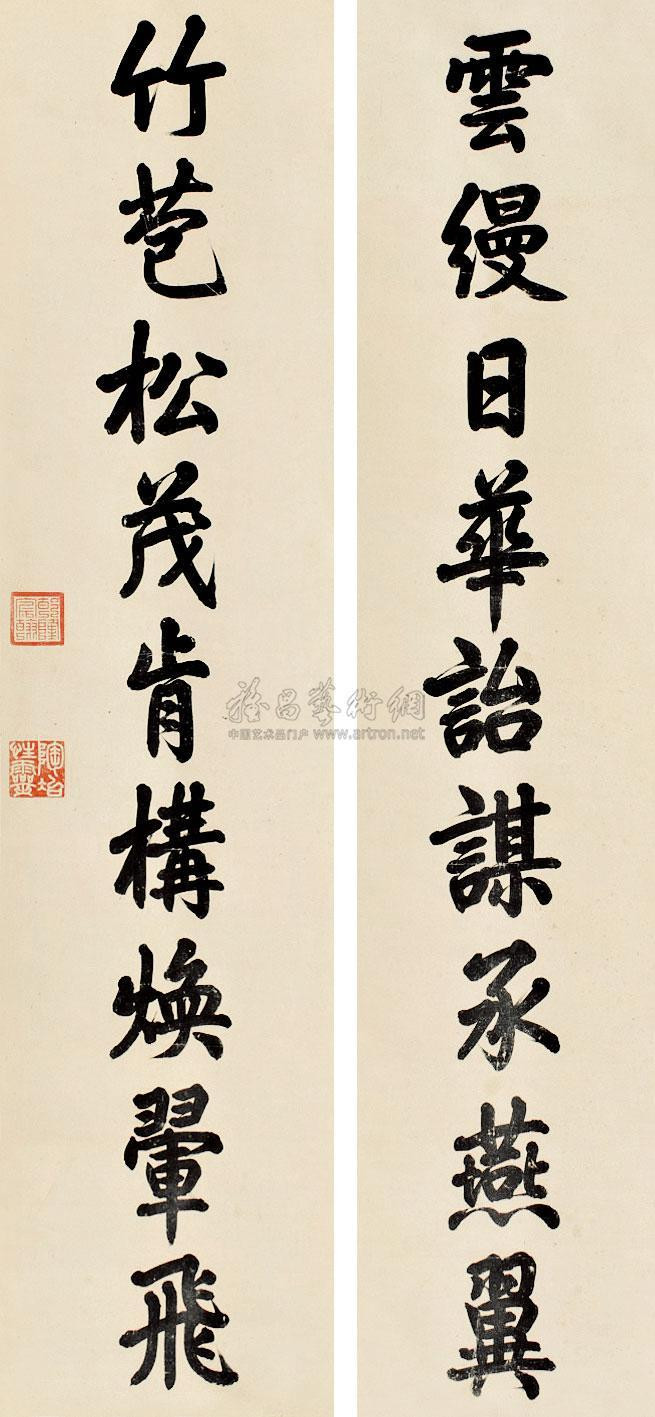 雲縵日華詒謀承燕翼
竹苞松茂肯構煥翬飛
陶冶性靈
雅昌藝術網
中国艺术品门户 www.artron.net